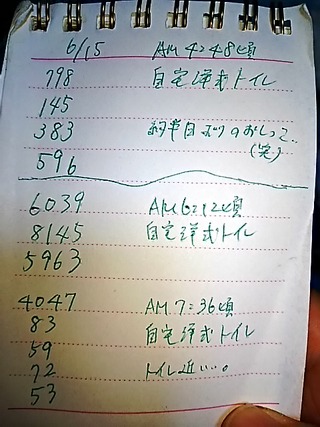 6/15 AM 4:48頃
798 自宅洋式トイレ
145
383 約半日ぶりのおしっこ..
596 (笑)
6039 AM 6:12頃
8145 自宅洋式トイレ
5963
4047 AM 7:36頃
83 自宅洋式トイレ
59
72 トイレ近い...。
53